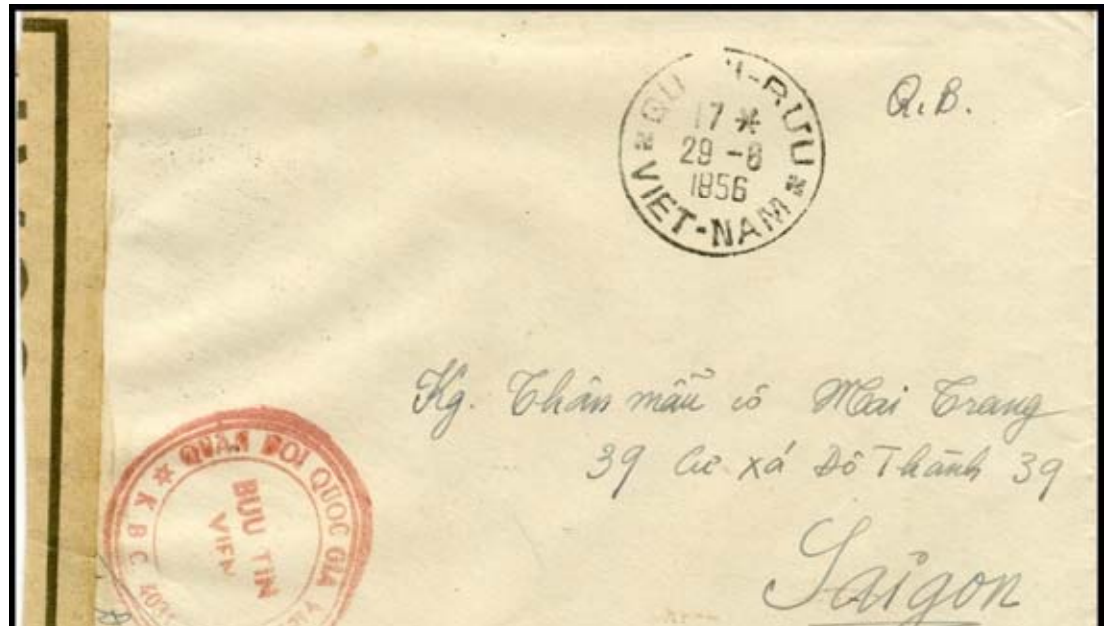 Q.B.
VIET-NAM
17 *
29 -8
1956
Kg. Thân mẫu cô Mai Trang
39 Cư xá Đô Thành 39
Saigon
QUAN DOI QUOC GIA
BUU TIN
VIEN
K B C